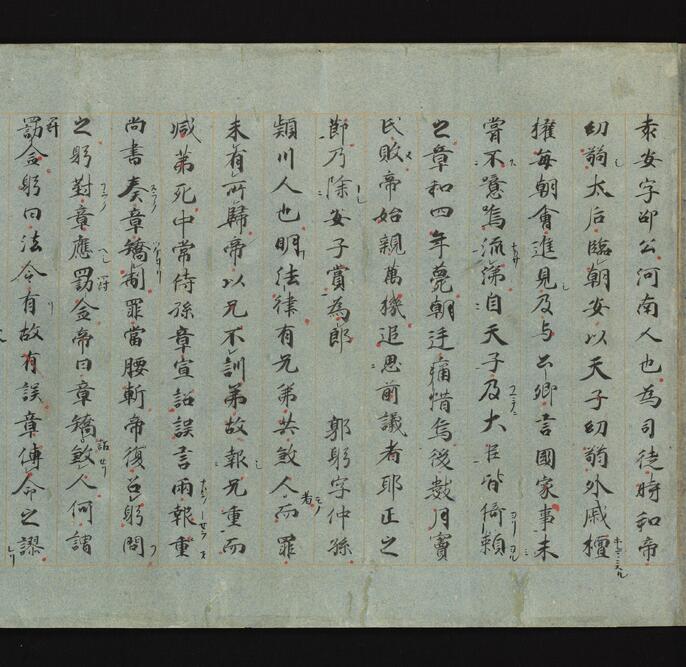 袁安字邵公河南人也為司徒時和帝
幼弱太后臨朝安以天子幼弱外戚擅
權每朝會進見及与公卿言國家事未
甞不噫嗚流涕自天子及大臣皆倚賴
之章和四年薨朝廷痛惜焉後數月竇
氏敗帝始親萬機追思前議者耶正之
節乃除安子賞為郎　郭躬字仲孫
潁川人也明法律有兄弟共殺人而罪
未有所歸帝以兄不訓弟故報兄重而
減弟死中常侍孫章宣詔誤言兩報重
尚書奏章矯制罪當腰斬帝復召躬問
之躬對章應罰金帝曰章矯詔殺人何謂
罰金躬曰法令有故有誤章傳命之謬